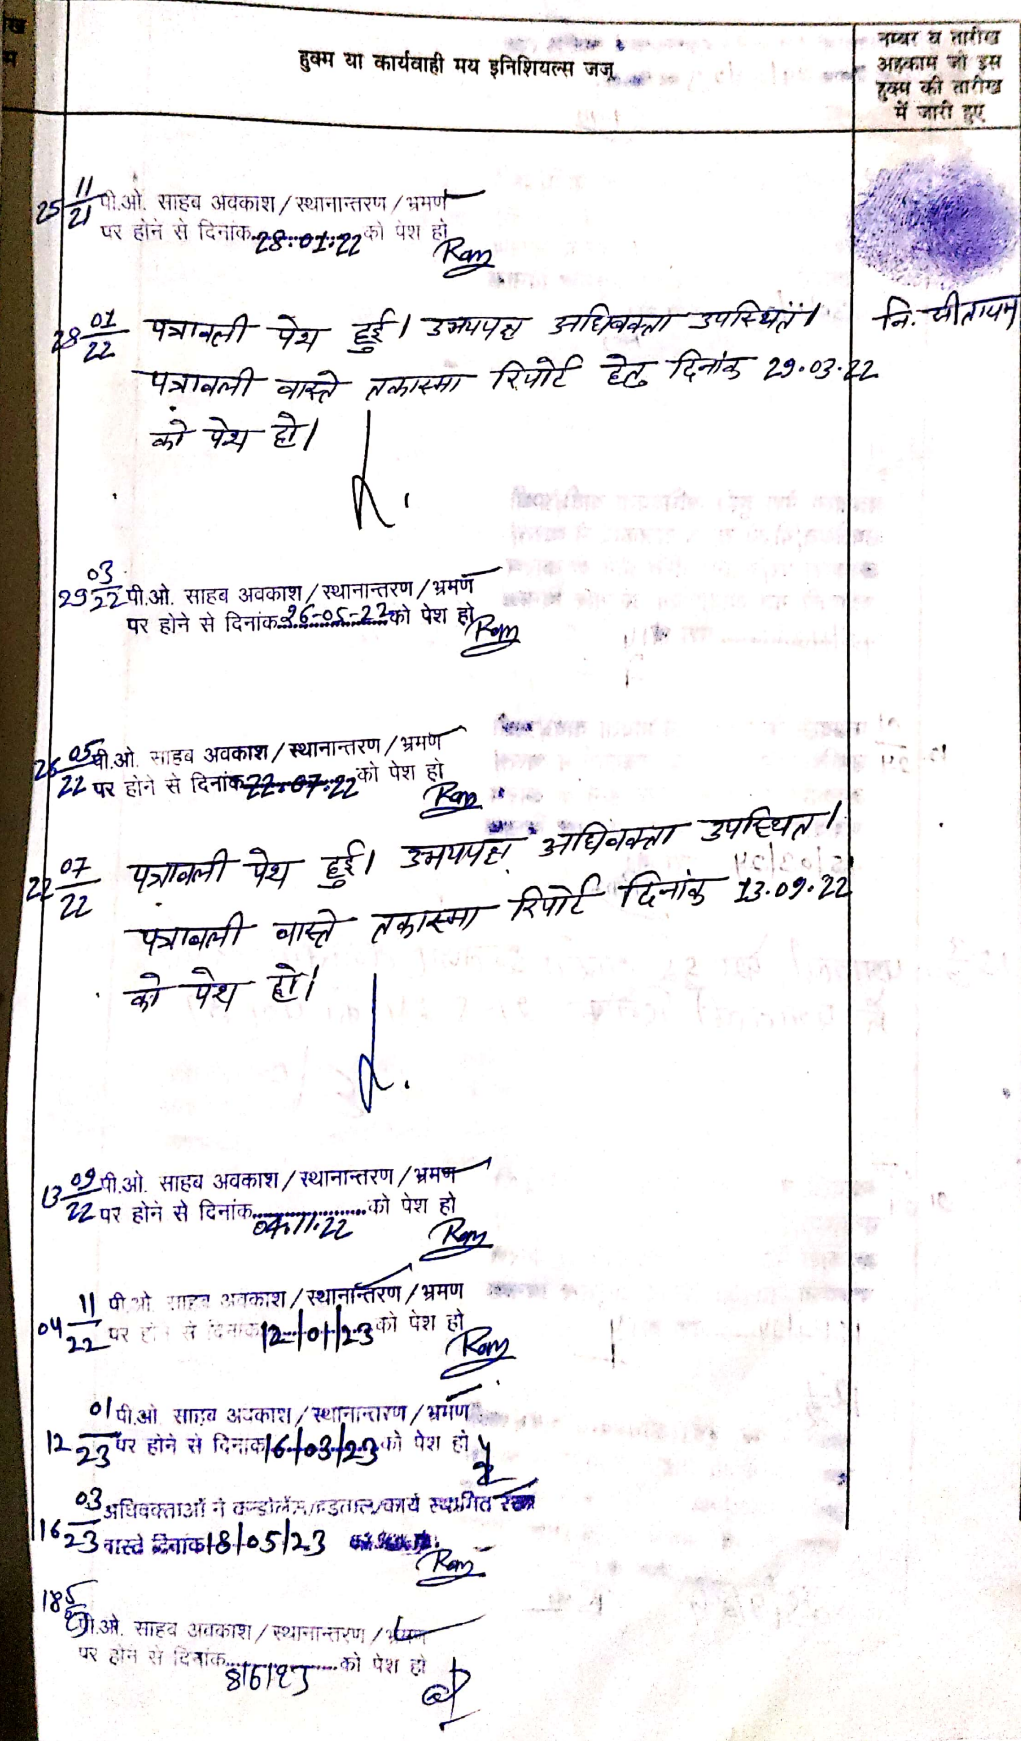 हुक्म या कार्यवाही मय इनिशियल्स जज
नम्बर व तारीख
अहकाम जो इस
हुक्म की तारीख
में जारी हुए
25 11/21 पी.ओ. साहब अवकाश/स्थानान्तरण/भ्रमण
पर होने से दिनांक 28.01.22 को पेश हो
Ram
28 01/22 पत्रावली पेश हुई। उभयपक्ष अधिवक्ता उपस्थित।
नि.
पत्रावली वास्ते तकास्मा रिपोर्ट हेतु दिनांक 29.03.22
को पेश हो।
29 03/22 पी.ओ. साहब अवकाश/स्थानान्तरण/भ्रमण
पर होने से दिनांक 26-05-22 को पेश हो
Ram
26 05/22 पी.ओ. साहब अवकाश/स्थानान्तरण/भ्रमण
पर होने से दिनांक 22.07.22 को पेश हो
Ram
22 07/22 पत्रावली पेश हुई। उभयपक्ष अधिवक्ता उपस्थित।
पत्रावली वास्ते तकास्मा रिपोर्ट दिनांक 13.09.22
को पेश हो।
13 09/22 पी.ओ. साहब अवकाश/स्थानान्तरण/भ्रमण
पर होने से दिनांक 04.11.22 को पेश हो
Ram
04 11/22 पी.ओ. साहब अवकाश/स्थानान्तरण/भ्रमण
पर होने से दिनांक 12/01/23 को पेश हो
Ram
12 01/23 पी.ओ. साहब अवकाश/स्थानान्तरण/भ्रमण
पर होने से दिनांक 16/03/23 को पेश हो
16 03/23 अधिवक्ताओं ने कन्डोलेंस/हड़ताल/कार्य स्थगित रखा
वास्ते दिनांक 18/05/23
Ram
18 5/23 पी.ओ. साहब अवकाश/स्थानान्तरण/भ्रमण
पर होने से दिनांक 8/6/23 को पेश हो